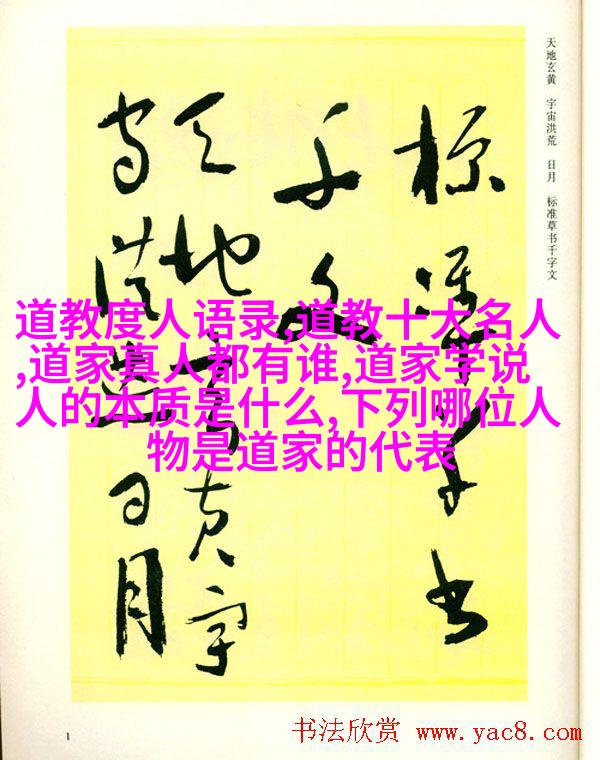 天地玄黄 宇宙洪荒 日月 标准草书千字文
标准草书
千文
天地玄黄宇
宙洪荒日月
道教度人语录,道教十大名人
,道家真人都有谁,道家学说
人的本质是什么,下列哪位人
物是道家的代表
1
书法欣赏 www.yac8.com